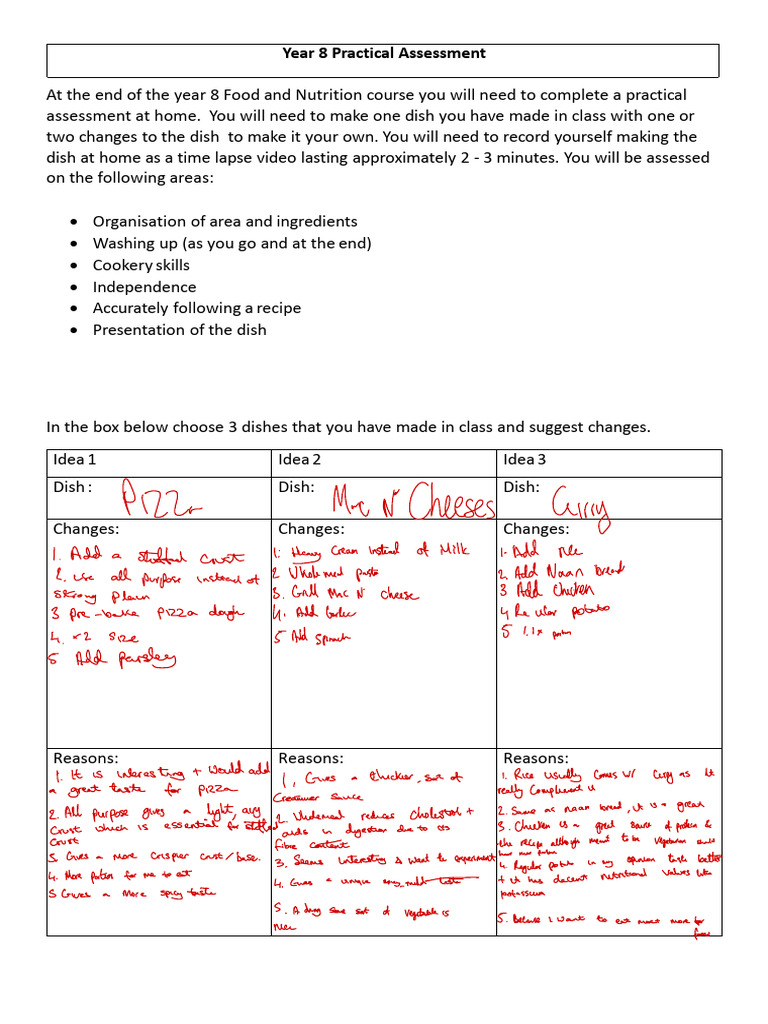 Year 8 Practical Assessment
At the end of the year 8 Food and Nutrition course you will need to complete a practical
assessment at home. You will need to make one dish you have made in class with one or
two changes to the dish to make it your own. You will need to record yourself making the
dish at home as a time lapse video lasting approximately 2 - 3 minutes. You will be assessed
on the following areas:
• Organisation of area and ingredients
• Washing up (as you go and at the end)
• Cookery skills
• Independence
• Accurately following a recipe
• Presentation of the dish
In the box below choose 3 dishes that you have made in class and suggest changes.
Idea 1
Dish : Pizza
Changes:
1. Add a stuffed crust
2. Use all purpose instead of
strong plain
3 Pre-bake pizza dough
4. x2 size
5 Add parsley
Reasons:
1. It is interesting + would add
a great taste for pizza
2. All purpose gives a light, airy
crust which is essential for stuffed
crust
3 Gives a more crispier crust/base.
4. More portion for me to eat
5 Gives a more spicy taste
Idea 2
Dish: Mac N Cheeses
Changes:
1. Heavy Cream instead of Milk
2 Wholemeal pasta
3. Grill Mac N cheese
4. Add Garlic
5 Add Spinach
Reasons:
1, Gives a thicker, sort of
Creamier Sauce
2. reduces cholesterol +
aids in digestion due to its
fibre content
3. Seems interesting & want to experiment
4. Gives a unique
5. A drug some sort of vegetable is
nice
Idea 3
Dish: Curry
Changes:
1. Add rice
2. Add Naan bread
3 Add Chicken
4 Regular potato
5 1.1x
Reasons:
1. Rice usually comes w/ Curry as it
really compliment it
2. Same as naan bread, it is a great
3. Chicken is a great source of protein &
the recipe although meant to be vegetarian could
have more protein
4. Regular potato in my opinion taste better
+ it has decent nutritional values like
potassium
5. Because I want to eat more